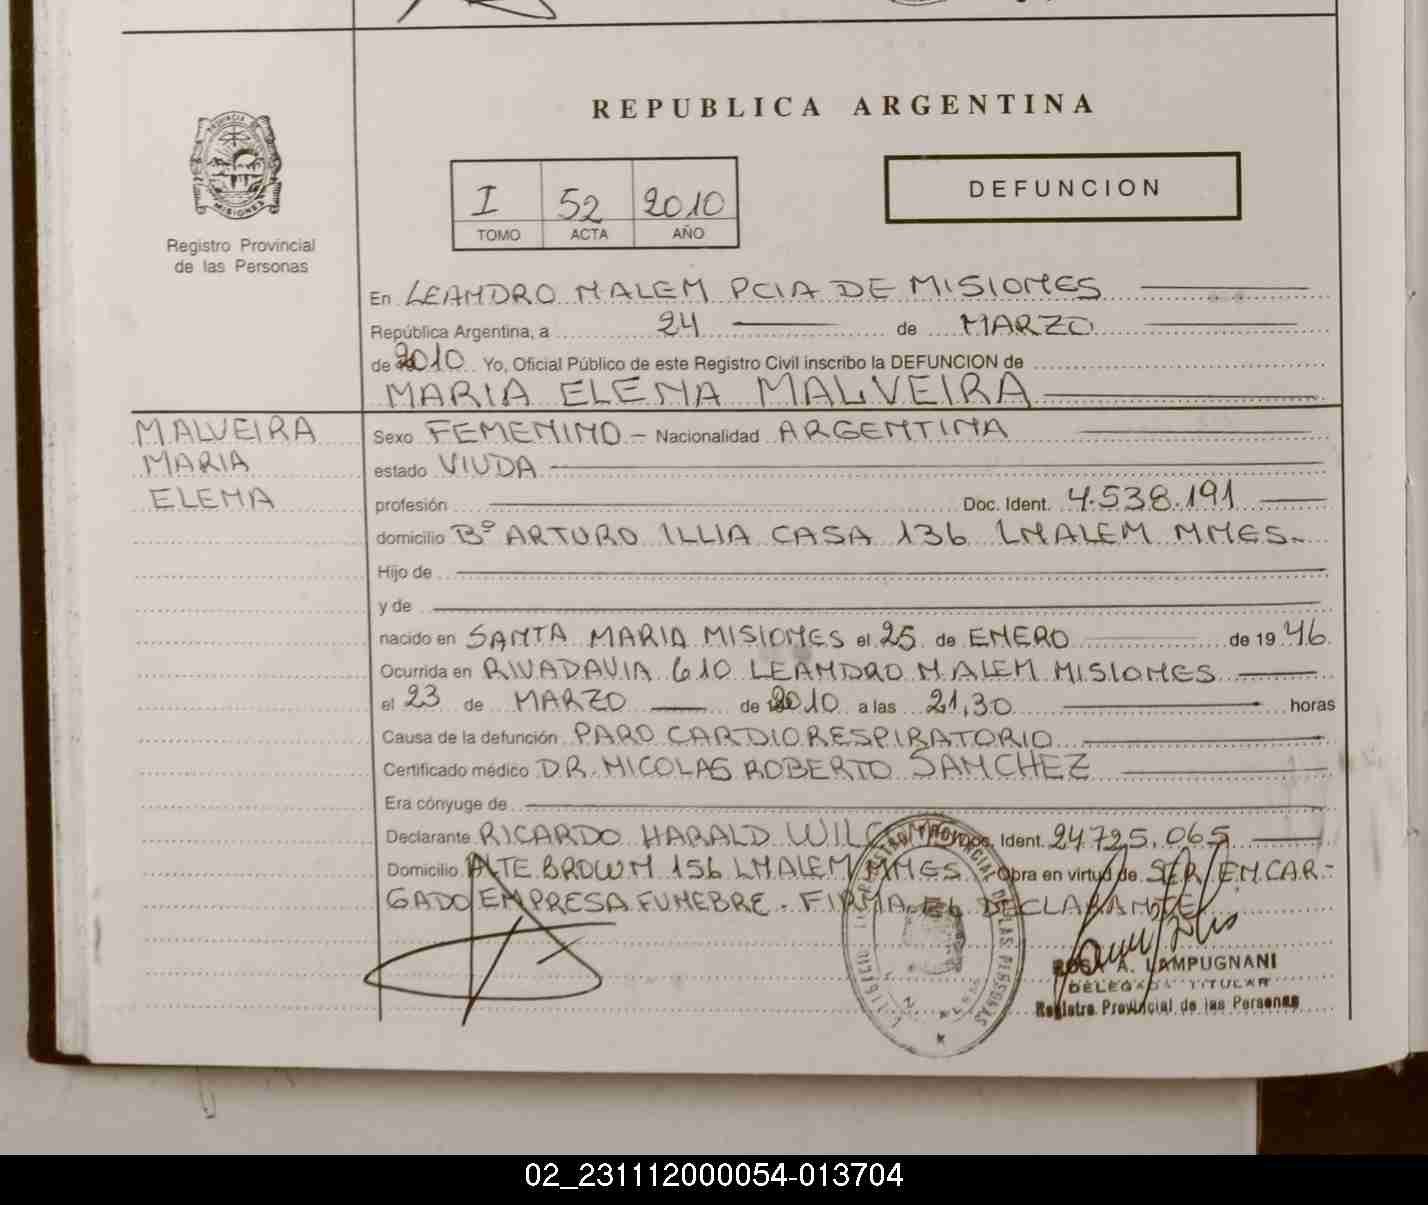 REPUBLICA ARGENTINA
PROVINCIA DE
MISIONES
Registro Provincial
de las Personas
I 52 2010
TOMO ACTA AÑO
DEFUNCION
En LEANDRO N ALEM PCIA DE MISIONES
República Argentina, a 24 de MARZO
de 2010 Yo, Oficial Público de este Registro Civil inscribo la DEFUNCION de
MARIA ELENA MALVEIRA
MALVEIRA
MARIA
ELENA
Sexo FEMENINO - Nacionalidad ARGENTINA
estado VIUDA
profesión Doc. Ident. 4.538.191
domicilio Bº ARTURO ILLIA CASA 136 LNALEM MNES.
Hijo de
y de
nacido en SANTA MARIA MISIONES el 25 de ENERO de 19 46.
Ocurrida en RIVADAVIA 610 LEANDRO N.ALEM MISIONES
el 23 de MARZO de 2010 a las 21,30 horas
Causa de la defunción PARO CARDIORESPIRATORIO
Certificado médico DR. NICOLAS ROBERTO SANCHEZ
Era cónyuge de
Declarante RICARDO HARALD Ident. 24.725.065
Domicilio ALTE BROWN 156 LNALEM MNES Obra en virtud de SER ENCAR-
GADO EMPRESA FUNEBRE. FIRMA EL DECLARANTE
ROSA A. LAMPUGNANI
DELEGADA TITULAR
Registro Provincial de las Personas
02_231112000054-013704